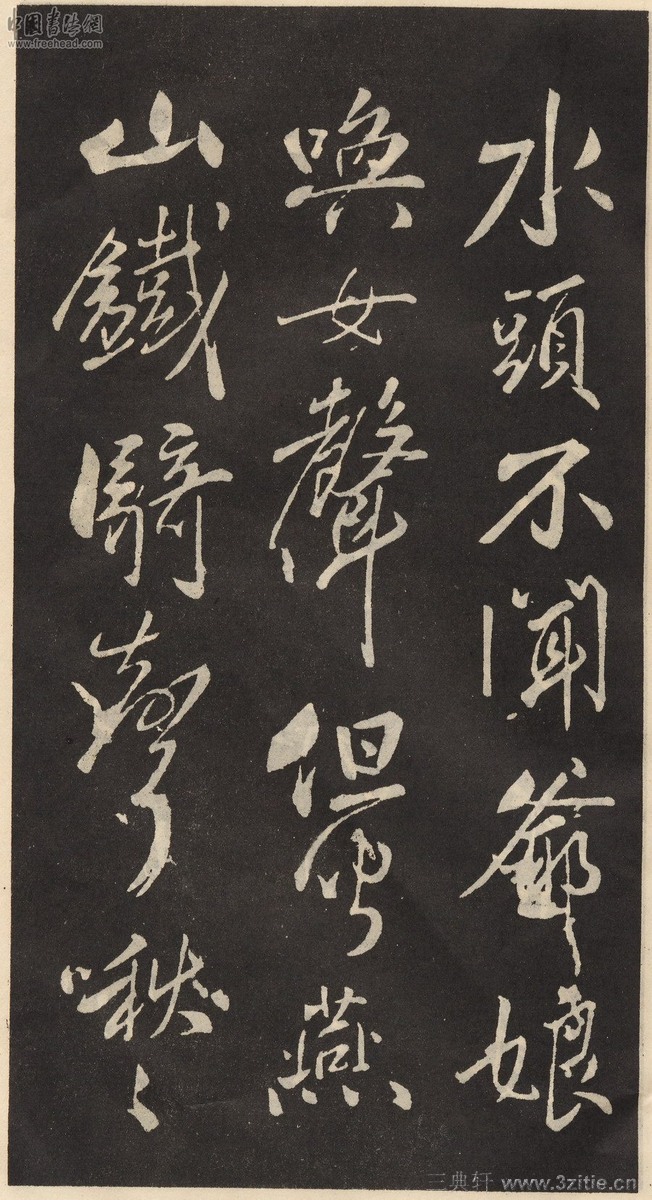 水頭不聞爺娘
喚女聲但聞燕
山鐵騎聲啾〻
中国书法網
www.freehead.com
三典轩 www.3zitie.cn